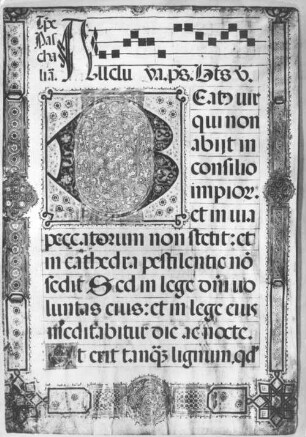 Tp̄e
Pas
cha
li A
lleluia. ps. Bt̄s v.
Beat9 uir
qui non
abijt in
consilio
impior.
et in uia
peccatorum non stetit: et
in cathedra pestilentie nō
sedit Sed in lege dn̄i uo
luntas eius: et in lege eius
meditabitur die ac nocte.
Et erit tanq̄ lignum, qd